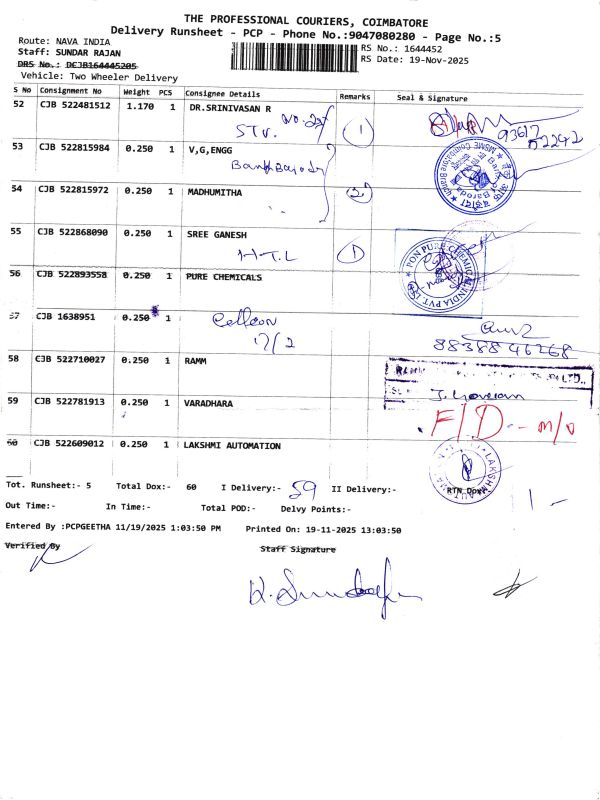 THE PROFESSIONAL COURIERS, COIMBATORE
Delivery Runsheet - PCP - Phone No.:9047080280 - Page No.:5
Route: NAVA INDIA
RS No.: 1644452
Staff: SUNDAR RAJAN
RS Date: 19-Nov-2025
DRS No.: DCJB164445205
Vehicle: Two Wheeler Delivery
S No Consignment No Weight PCS Consignee Details Remarks Seal & Signature
52 CJB 522481512 1.170 1 DR.SRINIVASAN R
STV.
1
53 CJB 522815984 0.250 1 V,G,ENGG
54 CJB 522815972 0.250 1 MADHUMITHA
2
55 CJB 522868090 0.250 1 SREE GANESH
H.T.L
1
56 CJB 522893558 0.250 1 PURE CHEMICALS
57 CJB 1638951 0.250 1
88388 46268
58 CJB 522710027 0.250 1 RAMM
59 CJB 522781913 0.250 1 VARADHARA
F/D - m/o
60 CJB 522609012 0.250 1 LAKSHMI AUTOMATION
Tot. Runsheet:- 5 Total Dox:- 60 I Delivery:- 59 II Delivery:- RTN Dox:- 1 -
Out Time:- In Time:- Total POD:- Delvy Points:-
Entered By :PCPGEETHA 11/19/2025 1:03:50 PM Printed On: 19-11-2025 13:03:50
Verified By Staff Signature